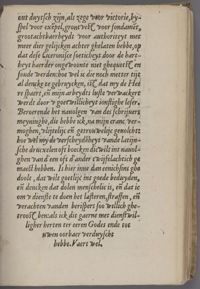 ons duytsch zijn, als zege voor victorie, by-
spel voor exēpel, grontvest voor fondamēt,
grootachtbaerheydt voor authoriteyt met
meer dier gelijcken achter ghelaten hebbe, op
dat dese Ciceronisse soeticheyt door de hart-
heyt haerder ongewoonte niet ghequetst en
soude werden: hoe wel ic die noch meter tijt
al drucke te gebruycken, ist dat my de
spaert, en mijn arbeydts luste verwackert
werdt door v goetwillicheyt ionstige leser.
Beroerende het navolgen van des schrijvers
meyninghe, die hebbe ick, na mijn cranc ver-
moghen, vlijtelijc en getrouwelijc gevolcht:
hoe wel my de verscheydēheyt vande latijn-
sche drucselen oft boecken dicwils int navol-
ghen vande een oft d'ander twijfelachtich ge
maect hebben. Is hier inne dan eenichsins ghe
doolt, dat wilt goetlijc int goede beduyden,
en dencken dat dolen menschelijc is, en dat ic
om v dienste te doen het lasteren, straffen, en
verachten vanden berispers soo willich ghe-
troost ben, als ick dit gaerne met dienstwil-
ligher herten ter eeren Godes ende tot
uwen oorbaer verduyscht
hebbe. Vaert wel.